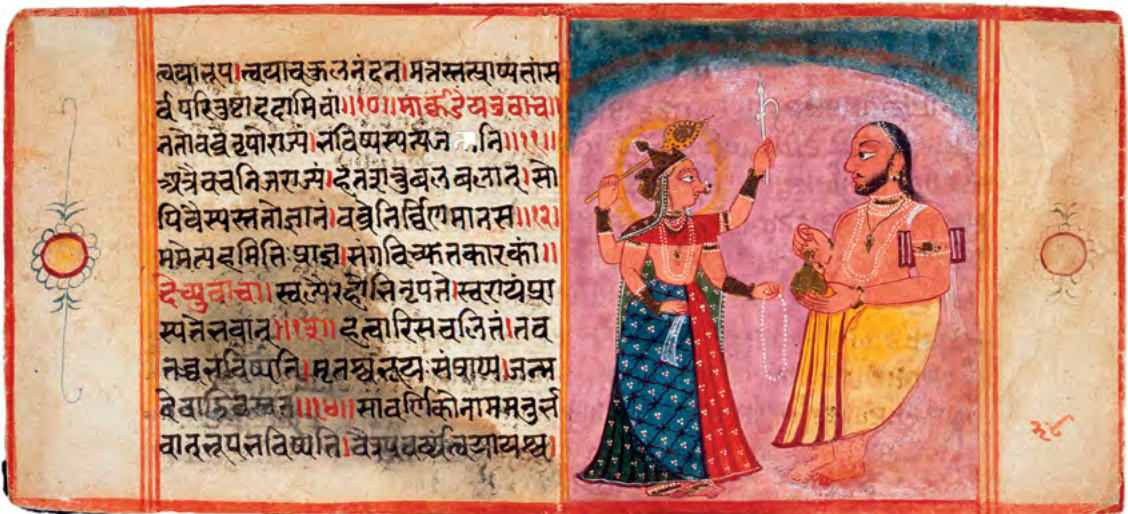 त्वयाभूप।त्वयाचकुलनंदन।मत्रस्तत्प्राप्यतांस
र्वपरितुष्टाददामिवां॥१०॥मार्कंडेयउवाच॥
ततोवव्रेनृपोराज्यं।भविष्यस्यत्यज नि॥११॥
अत्रैवचनिजराज्यं।हतशत्रुबलंबलात्।सो
पिवैस्यस्ततोज्ञानं।वव्रेनिर्विणमानस॥१२॥
ममेत्यहमितिप्राज्ञ।संगविच्युतकारकं॥
देव्युवाच॥स्वल्पैरहोभिनृपते।स्वराज्यंप्रा
स्यतेभवान्॥१३॥हत्वारिसचलितं।तव
तत्रभविष्यति।मृतश्चभूयःसंप्राप्य।जन्म
॥१४॥सावर्णिकोनाममनुर्भ
वान्भूपभविष्यति।वैश्यवर्य्यत्वयायश्च।
३४